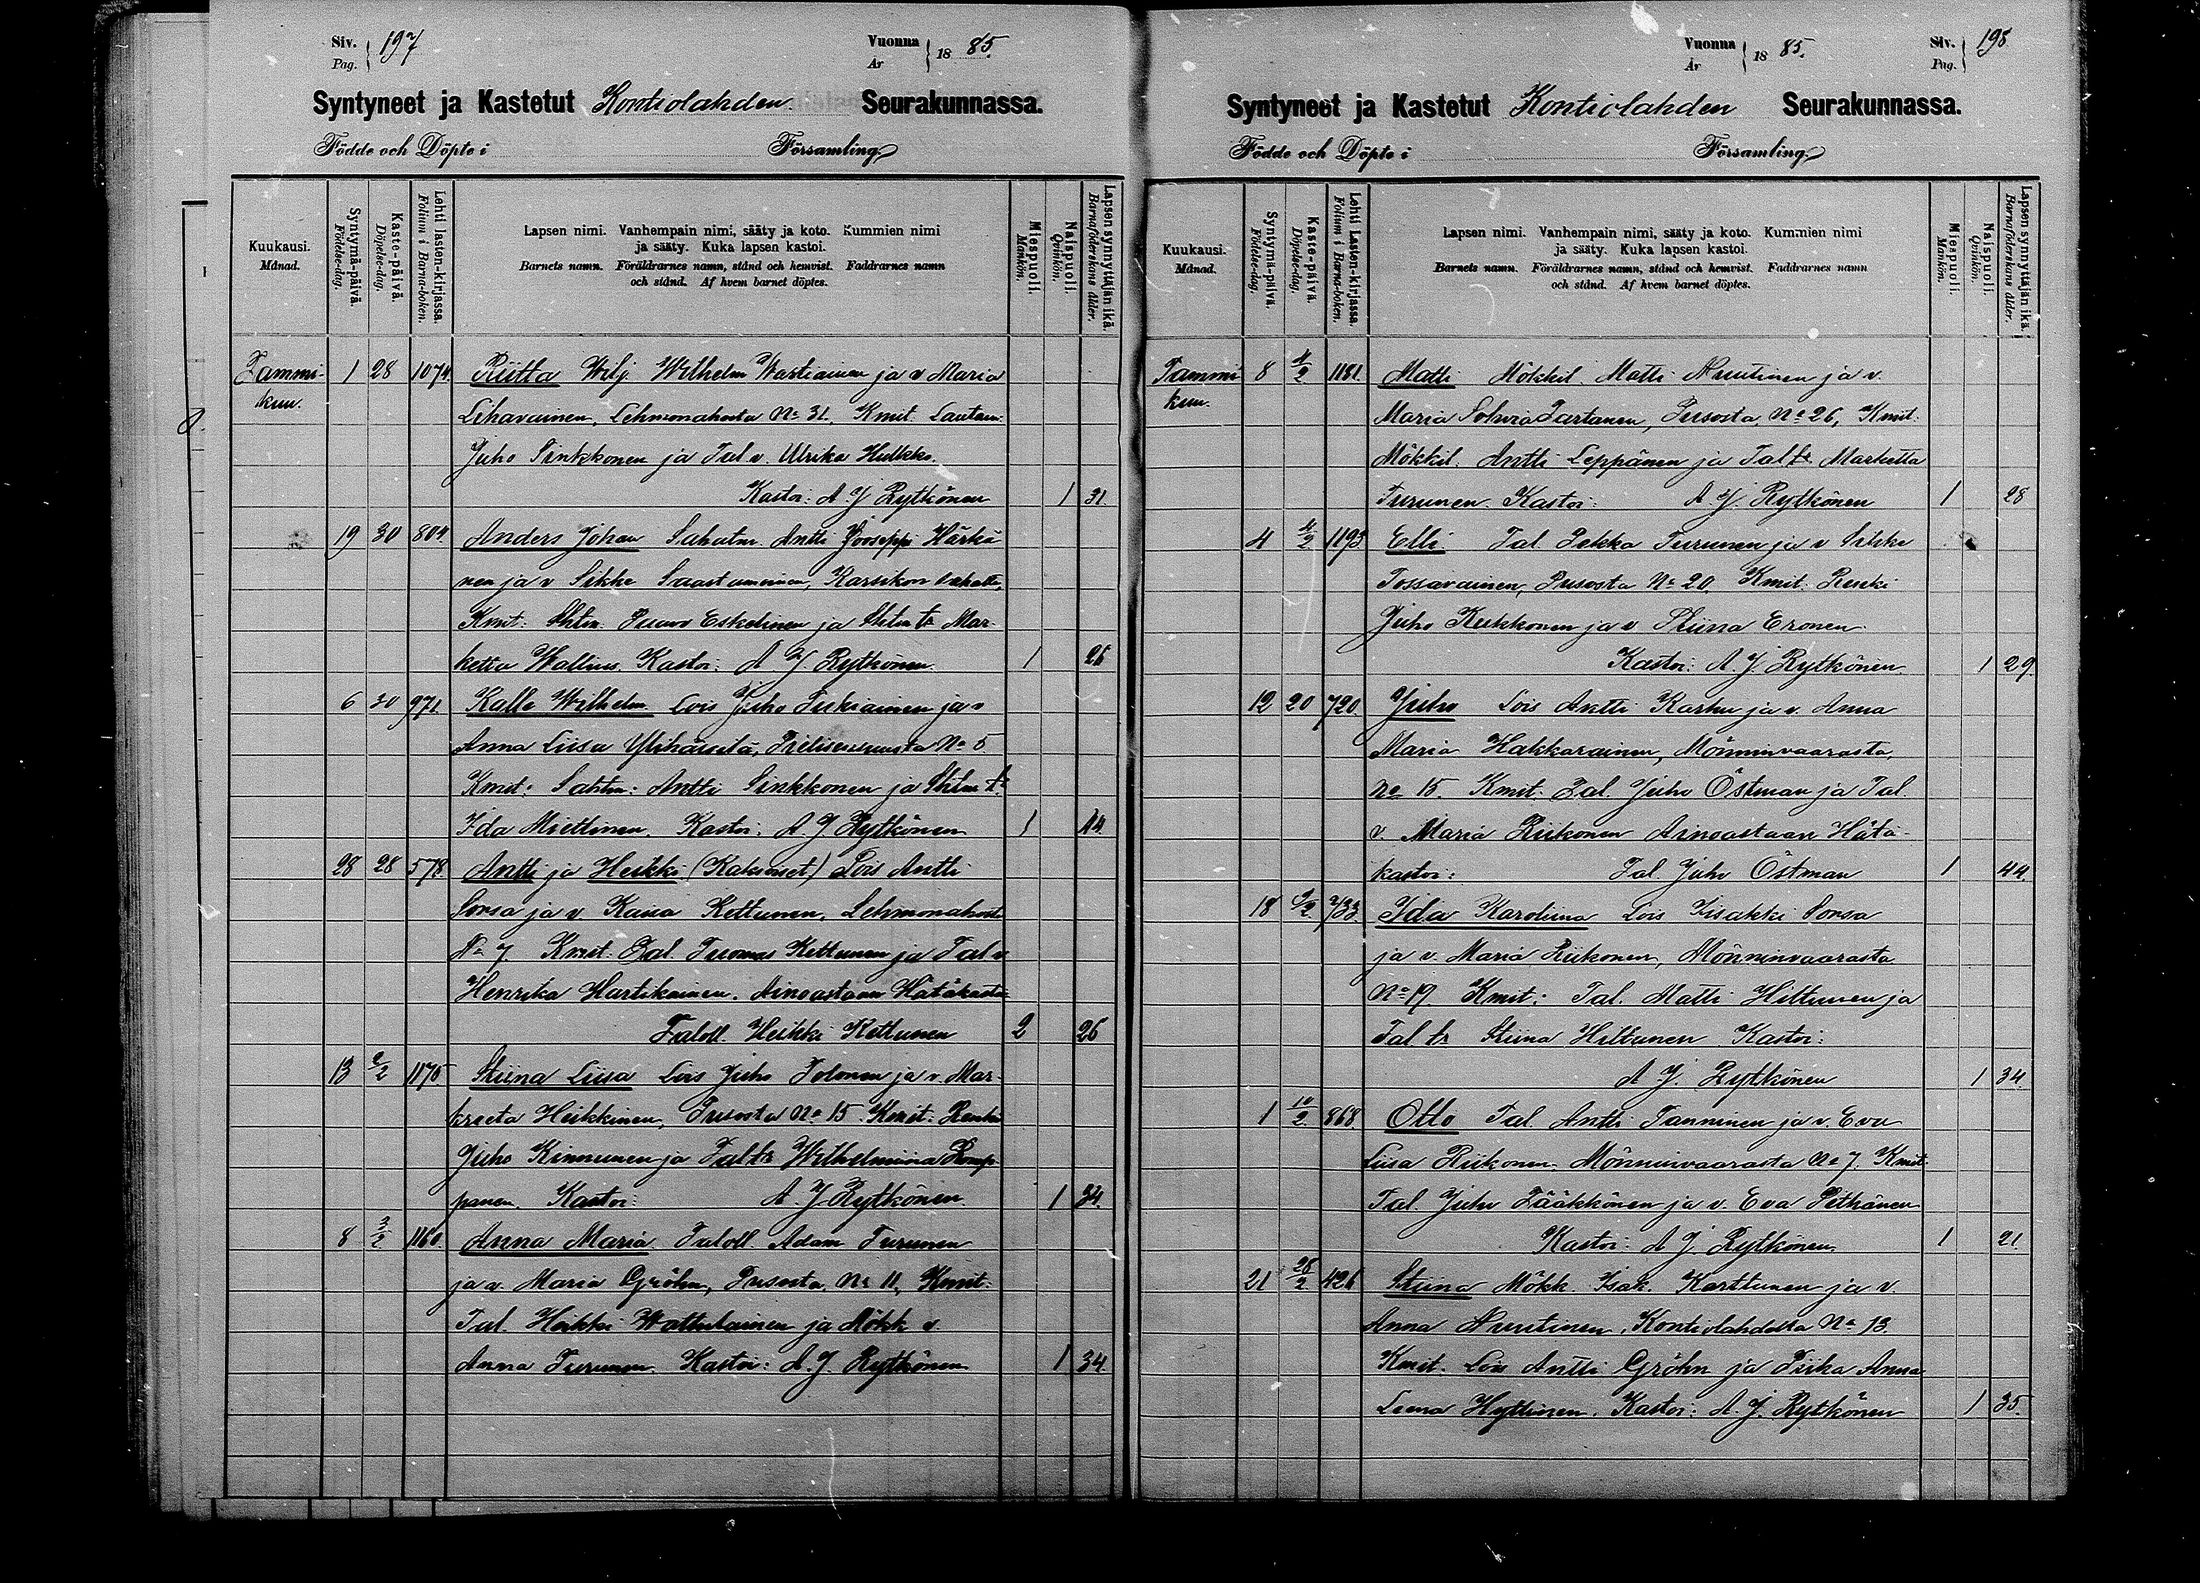 Siv. Pag. 197
Vuonna År 1885.
Syntyneet ja Kastetut Kontiolahden Seurakunnassa.
Födde och Döpte i Församling.
Kuukausi. Månad.
Syntymä-päivä. Födelse-dag.
Kaste-päivä. Döpelse-dag.
Lehti lasten-kirjassa. Folium i Barna-boken.
Lapsen nimi. Vanhempain nimi, sääty ja koto. Kummien nimi
ja sääty. Kuka lapsen kastoi.
Barnets namn. Föräldrarnes namn, stånd och hemvist. Faddrarnes namn
och stånd. Af hvem barnet döptes.
Miespuoli. Mankön.
Naispuoli. Qvinkön.
Lapsen synnyttäjän ikä. Barnaföderskans ålder.
Tammi- 1 28 1074. Riitta Wilj Wilhelm Wartiainen ja v Maria
kuu. Lihavainen, Lehmonahosta No 31. Kmit. Lautam:
Juho Sinkkonen ja Tal v. Ulrika Hulkko.
Kastoi: A J Rytkönen 1 31.
19 30 804. Anders Johan Sahatm. Antti Jooseppi Härkö-
nen ja v Sikke Saastamoinen,
Kmit: Shtm. Paavo Eskelinen ja Shtm tr Mar-
ketta Wallius. Kastoi: A J Rytkönen. 1 26
6 30 971. Kalle Wilhelm. Lois Juho Turkiainen ja v
Anna Liisa No 5.
Kmit: Sahtm: Antti Sinkkonen ja Shtm tr
Ida Miettinen. Kastoi: A. J Rytkönen 1 44
28 28 578. Antti ja Heikki (Kaksoiset) Lois Antti
Sorsa ja v Kaisa Kettunen, Lehmonahosta
No 7. Kmit. Tal. Tuomas Kettunen ja Tal v
Henrika Hartikainen. Ainoastaan Hätäkastoi
Taloll. Heikki Kettunen 2 26
13 2/2 1175 Stiina Liisa Lois Juho Polonen ja v. Mar-
kreeta Heikkinen, Pusosta No 15. Kmit: Renki
Juho Kinnunen ja Tal tr Wilhelmiina Romp-
panen. Kastoi: A. J. Rytkönen. 1 34.
8 3/2 1160. Anna Maria Taloll. Adam Turunen
ja v. Maria Gröhn, Pusosta. No 11, Kmit:
Tal. Heikki Wattulainen ja Mökk v
Anna Turunen. Kastoi: A. J. Rytkönen 1 34
Vuonna År 1885.
Siv. Pag. 198
Syntyneet ja Kastetut Kontiolahden Seurakunnassa.
Födde och Döpte i Församling.
Kuukausi. Månad.
Syntymä-päivä. Födelse-dag.
Kaste-päivä. Döpelse-dag.
Lehti Lasten-kirjassa. Folium i Barna-boken.
Lapsen nimi. Vanhempain nimi, sääty ja koto. Kummien nimi
ja sääty. Kuka lapsen kastoi.
Barnets namn. Föräldrarnes namn, stånd och hemvist. Faddrarnes namn
och stånd. Af hvem barnet döptes.
Miespuoli. Mankön.
Naispuoli. Qvinkön.
Lapsen synnyttäjän ikä. Barnaföderskans ålder.
Tammi 8 4/2 1181. Matti Mökkil. Matti Nuutinen ja v.
kuu. Maria Sohvia Partanen, Pusosta, No 26, Kmit.
Mökkil. Antti Leppänen ja Tal tr Marketta
Turunen. Kastoi: A J. Rytkönen 1 28
4 4/2 1193 Elli Tal. Pekka Turunen ja v Sikke
Tossavainen, Pusosta No 20. Kmit. Renki
Juho Kukkonen ja v Stiina Eronen.
Kastoi: A. J. Rytkönen. 1 29.
12 20 720. Juho Lois Antti Karhu ja v. Anna
Maria Hakkarainen, Mönninvaarasta,
No 15. Kmit. Tal. Juho Östman ja Tal.
v. Maria Riikonen Ainoastaan Hätä-
kastoi: Tal Juho Östman 1 44.
18 9/2 733. Ida Karoliina Lois Iisakki Sorsa
ja v. Maria Riikonen, Mönninvaarasta
No 19. Kmit: Tal. Matti Hiltunen ja
Tal tr Stiina Hiltunen. Kastoi:
A J. Rytkönen 1 34.
1 10/2. 868. Otto Tal Antti Tanninen ja v. Eva
Liisa Riikonen. Mönninvaarasta No 7. Kmit.
Tal. Juho Pääkkönen ja v. Eva Pitkänen
Kastoi: A J. Rytkönen. 1 21.
21 28/2. 426 Stiina Mökk. Isak. Karttunen ja v.
Anna Nuutinen, Kontiolahdelta No 13.
Kmit. Lois Antti Gröhn ja Piika Anna
Leena Hyttinen. Kastoi: A. J. Rytkönen 1 35.